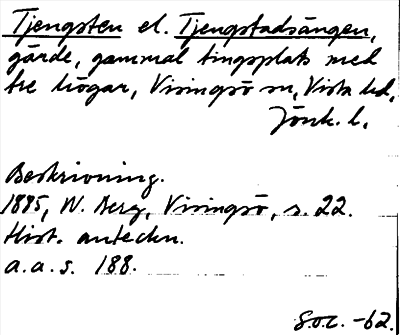 Tjengsten el. Tjengstadsängen,
gärde, gammal tingsplats med
tre högar, Visingsö sn, Vista hd,
Jönk. l.
Beskrivning.
1885, W. Berg, Visingsö, s. 22.
Hist. anteckn.
a.a.s. 188.
S.o.c. -62.